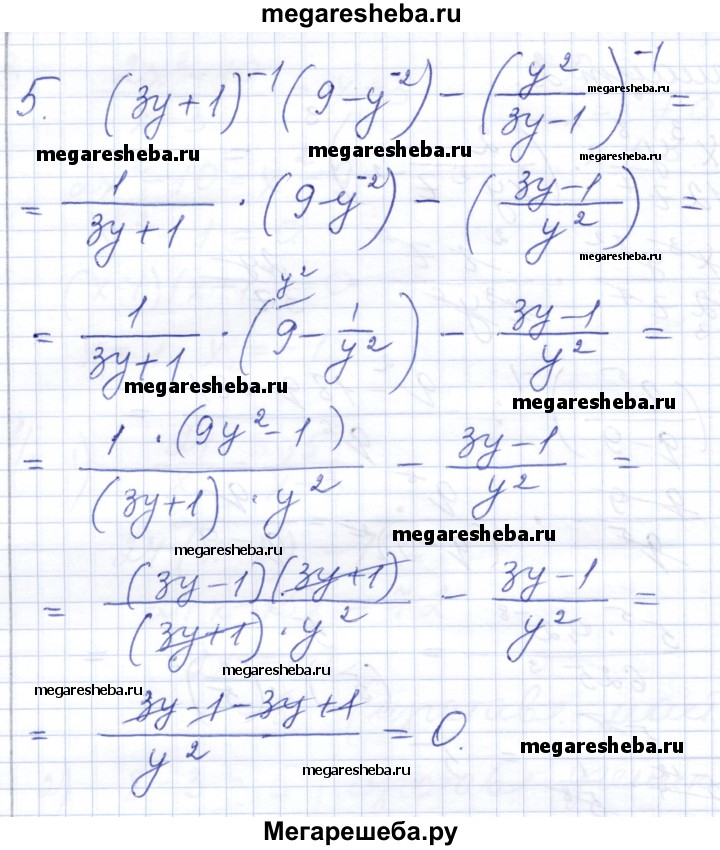 megaresheba.ru
5. (3y+1)⁻¹(9−y⁻²)−(y²/(3y−1))⁻¹ =
megaresheba.ru
megaresheba.ru megaresheba.ru
= 1/(3y+1) · (9−y⁻²) − ((3y−1)/y²) =
megaresheba.ru
megaresheba.ru
= 1/(3y+1) · (9^(y²) − 1/y²) − (3y−1)/y² =
megaresheba.ru megaresheba.ru
= (1·(9y²−1))/((3y+1)·y²) − (3y−1)/y² =
megaresheba.ru
megaresheba.ru
= ((3y−1)(3y+1))/((3y+1)·y²) − (3y−1)/y² =
megaresheba.ru
megaresheba.ru megaresheba.ru
= (3y−1−3y+1)/y² = 0.
megaresheba.ru
megaresheba.ru
Мегарешеба.ру